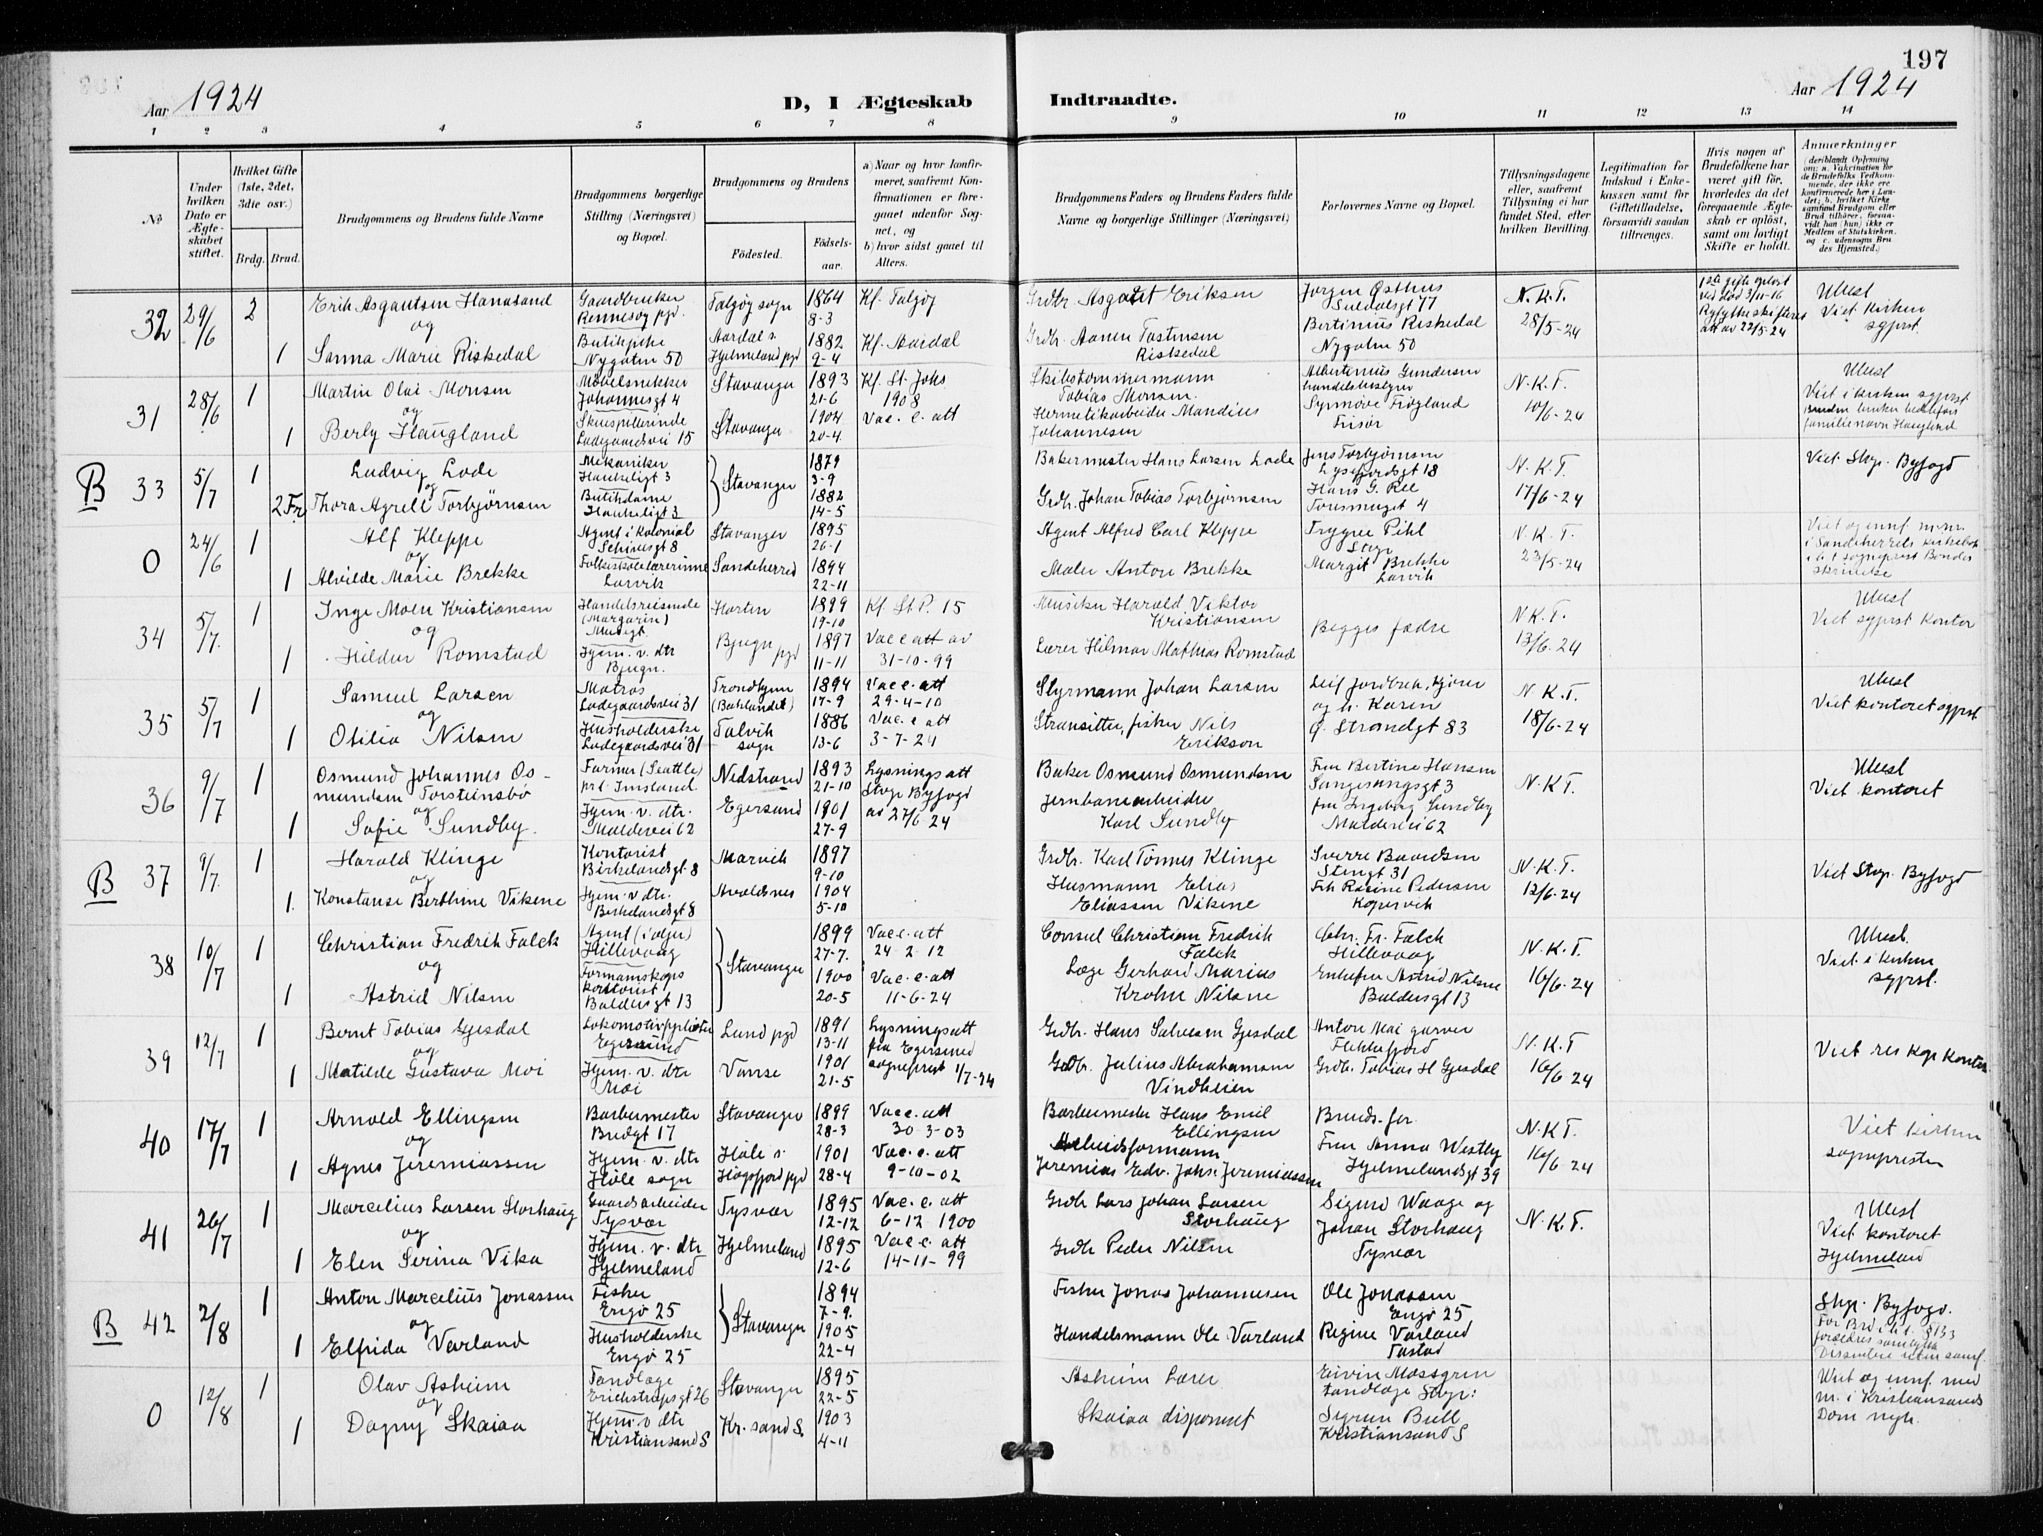 197
Aar 1924
D, I Ægteskab Indtraadte.
Aar 1924
1 2 3 4 5 6 7 8 9 10 11 12 13 14
№
Under hvilken Dato er Ægteskabet stiftet.
Hvilket Gifte (1ste, 2det, 3die osv.)
Brdg. Brud.
Brudgommens og Brudens fulde Navne
Brudgommens borgerlige Stilling (Næringsvei) og Bopæl.
Brudgommens og Brudens
Fødested.
Fødselsaar.
a) Naar og hvor konfirmeret, saafremt Konfirmationen er foregaaet udenfor Sognet, og
b) hvor sidst gaaet til Alters.
Brudgommens Faders og Brudens Faders fulde Navne og borgerlige Stillinger (Næringsvei)
Forlovernes Navne og Bopæl.
Tillysningsdagene eller, saafremt Tillysning ei har fundet Sted, efter hvilken Bevilling.
Legitimation for Indskud i Enkekassen samt for Giftetilladelse, forsaavidt saadan tiltrænges.
Hvis nogen af Brudefolkene har været gift før, hvorledes da det foregaaende Ægteskab er opløst, samt om lovligt Skifte er holdt.
Anmærkninger
32 29/6 2 Erik Asgautsen Hanasand Gaardbruker Rennesøy pgd. Talgøy sogn 1864 8-3 Kf. Talgøy Grdbr. Asgaut Eriksen Jørgen Østhus Suldalsgt 77 N.K.T. 28/5-24
og
1 Sanna Marie Riskedal Butikpike Nygaten 50 Aardal s. Hjelmeland pgd 1882 9-4 Kf. Aardal Grdbr. Aanen Tostensen Riskedal Bertinius Riskedal Nygaten 50 Viet kirken sgprst.
31 28/6 1 Martin Olai Monsen Møbelsnekker Johannesgt 4 Stavanger 1893 21-6 Kf. St. Johs 1908 Skibstømmermann Tobias Monsen. Albertinius Gundersen N.K.T. 10/6-24
og
1 Berly Haugland Skuespillerinde Ladegaardsvei 15 Stavanger 1904 20-4 Vac. e. att Hermetikarbeider Mandius Johannesen Synnøve Frøyland Frisør Viet i kirken sgprst
B 33 5/7 1 Ludvig Lode Mekaniker Haukeligt 3 Stavanger 1879 3-9 Bakermester Hans Larsen Lode Jens Torbjørnsen Lysefjordsgt 18 N.K.T. 17/6-24 Viet Stvgr. Byfogd
og
2 Fr. Thora Agrell Torbjørnsen Butikdame Haukeligt 3 1882 14-5 Grdbr. Johan Tobias Torbjørnsen Hans G. Ree
0 24/6 1 Alf Kleppe Agent i Kolonial Schiwesgt 8 Stavanger 1895 26-1 Agent Alfred Carl Kleppe Trygve Pihl Stvgr N.K.T. 23/5-24
og
1 Alvilde Marie Brekke Folkeskolelærerinne Larvik Sandeherred 1894 22-11 Maler Anton Brekke Margit Brekke Larvik
34 5/7. 1 Inge Moen Kristiansen Handelsreisende (Margarin) Horten 1899 19-10 Kf St. P. 15 Musiker Harald Viktor Kristiansen Begges fædre N.K.T. 13/6-24 Viet sgprst kontor
og
1 Hildur Romstad Hjem. v. dtr Bjugn. Bjugn pgd 1897 11-11 Vac e att av 31-10-99 Lærer Hilmar Mathias Romstad
35 5/7 1 Samuel Larsen Matros Ladegaardsvei 31 Trondhjem (Baklandet) 1894 17-9 Vac. e. att 29-4-10 Styrmann Johan Larsen N.K.T. 18/6-24 Viet kontoret sgprst
og
1 Otilia Nilsen Husholderske Ladegaardsvei 31 Talvik sogn 1886 13-6 Vac. e att 3-7-24 Stransitter, fisker Nils Erikson Ø. Strandgt 83
36 9/7 1 Osmund Johannes Osmundsen Torsteinsbø Farmer (Seattle) prt. Imsland. Nedstrand 1893 21-10 Lysnings att Stvgr Byfogd av 27/6 24 Baker Osmund Osmundsen Fru Bertine Hansen N.K.T. Viet kontoret
og
1 Sofie Sundby. Hjem. v. dtr. Maldevei 62 Egersund 1901 27-9 Jernbanearbeider Karl Sundby fru Ingeborg Sundby Maldevei 62
B 37 9/7. 1 Harald Klinge Kontorist Birkelandsgt 8 Marvik 1897 9-10 Grdbr. Karl Tønnes Klinge Sverre Baardsen Stengt 31 N.K.T. 12/6-24 Viet Stvgr. Byfogd
og
1. Konstanse Berthine Vikene Hjem. v dtr. Birkelandsgt 8 Avaldsnes 1904 5-10 Husmann Elias Eliassen Vikene Frk Rasine Pedersen Kopervik
38 10/7 1 Christian Fredrik Falck Agent (i olje) Hillevaag Stavanger 1899 27-7. Vac. e. att 24-2-12 Consul Christian Fredrik Falck Chr. Fr. Falck Hillevaag N.K.T. 16/6-24 Viet i kirken sgprst.
og
1 Astrid Nilsen Formannskaps kontorist Baldersgt 13 1900 20-5 Vac. e. att 11-6-24 Læge Gerhard Marius Krohn Nilsen Enkefru Astrid Nilsen Baldersgt 13
39 12/7 1 Bernt Tobias Gjesdal Egersund Lund pgd 1891 13-11 Lysningsatt fra Egersund sogneprest 1/7-24 Grdbr. Hans Salvesen Gjesdal Anton Moi garver Flekkefjord N.K.T 16/6 24 Viet res kap kontor
og
1 Matilde Gustava Moi Hjem. v. dtr Moi Vanse 1901 21-5 Grdbr. Julius Abrahamsen Vindheien Grdbr. Tobias H Gjesdal
40 17/7 1 Arnold Ellingsen Barbermester Bredgt 17 Stavanger 1899 28-3 Vac e. att 30-3-03 Barbermester Hans Emil Ellingsen Bruds. far N.K.T. 16/6 24 Viet kirken sognepresten
og
1 Agnes Jeremiassen Hjem. v. dtr Høle sogn Høle s. Høgsfjord pgd 1901 28-4 Vac. e. att 9-10-02 Arbeidsformann Jeremias Edv. Johs. Jeremiassen Fru Anna Westby Hjelmelandsgt 39
41 26/7 1 Marcelius Larsen Storhaug Gaardsarbeider Tysvær Tysvær 1895 12-12 Vac. e. att 6-12 1900 Grdbr Lars Johan Larsen Storhaug Sigurd Waage og Johan Storhaug Tysvær N.K.T. Viet kontoret Hjelmeland
og
1 Elen Serina Vika Hjem. v. dtr Hjelmeland Hjelmeland 1895 12-6 Vac e. att 14-11-99 Grdbr Peder Nilsen
B 42 2/8 1 Anton Marcelius Jonassen Fisker Engø 25 Stavanger 1894 7-9. Fisker Jonas Johannesen Ole Jonassen Engø 25 Stvgr. Byfogd.
og
1 Elfrida Varland Husholderske Engø 25 1905 22-4 Handelsmann Ole Varland Regine Varland Tastad
0 12/8 1 Olav Asheim Tandlæge Erichstrupsgt 26 Stavanger 1895 22-5 Asheim Lærer Eivin Mossgren tandlæge Stvgr: Viet og innf. med m. i Kristiansands Dom mgh.
og
1 Dagny Skaiaa Hjem. v dtr Kristiansand S Kr. sand S. 1903 4-11 Skaiaa disponent Sigrun Bull Kristiansand S